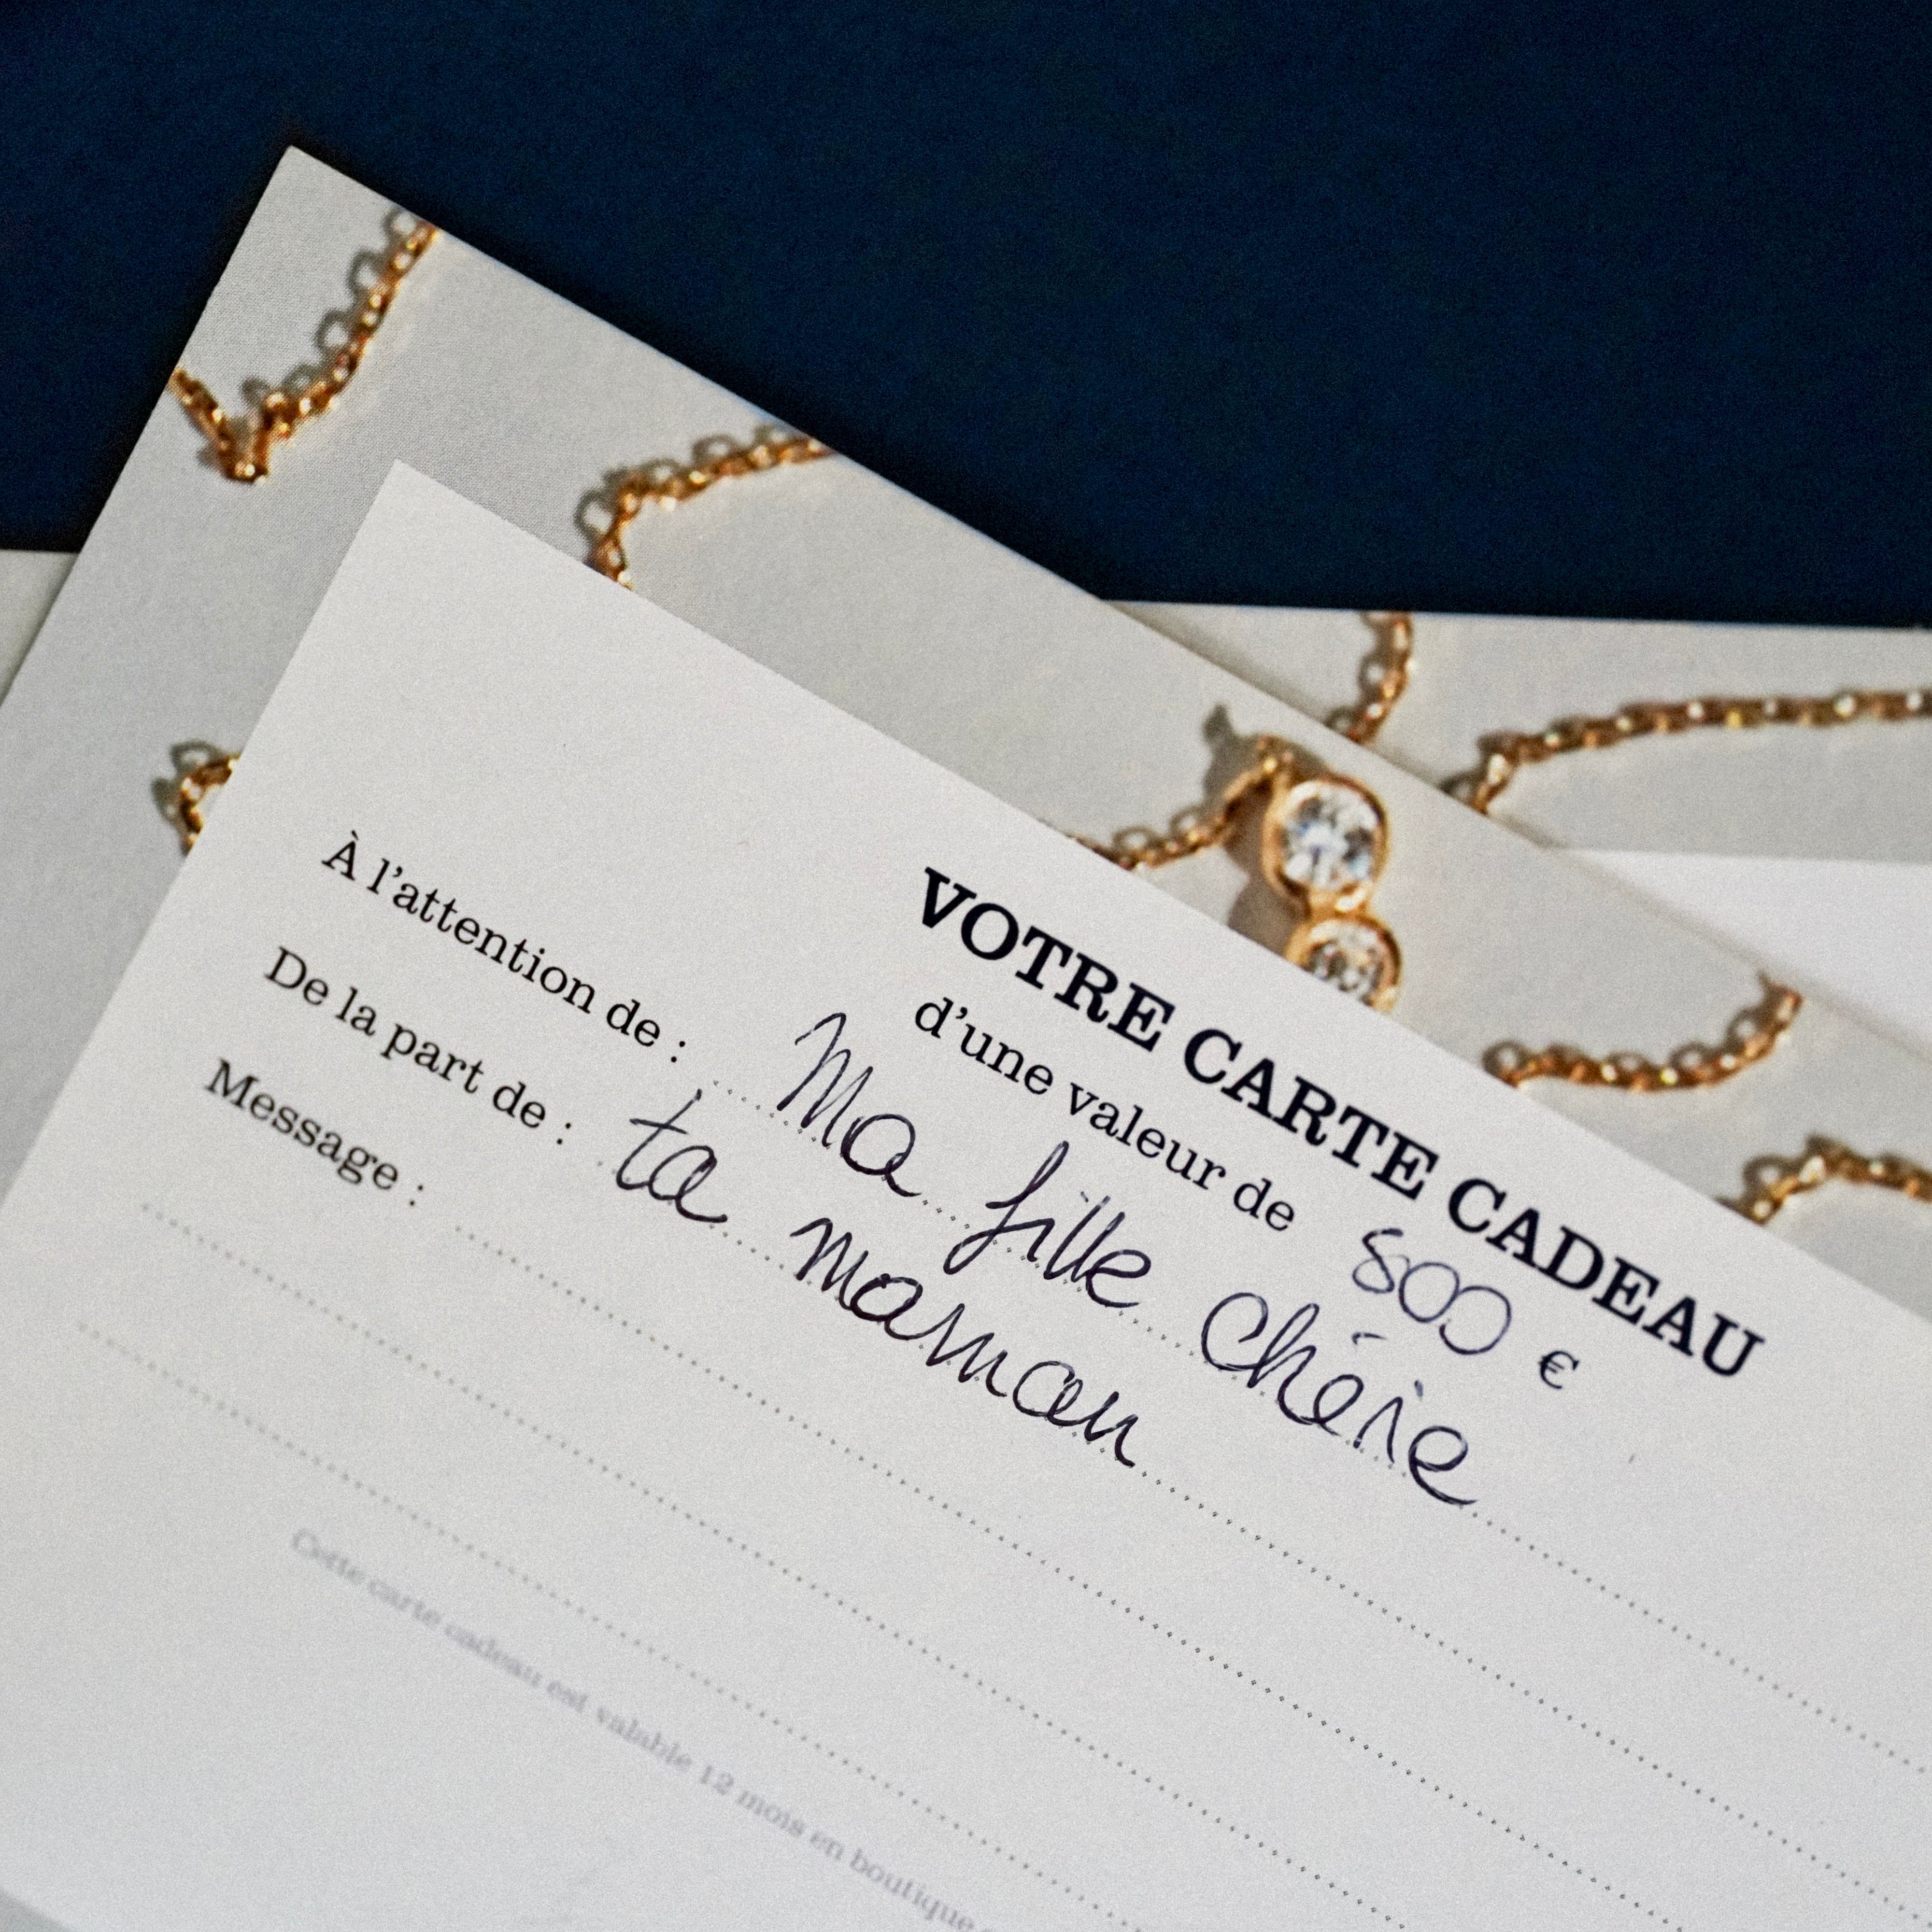 VOTRE CARTE CADEAU
d'une valeur de 800 €
À l'attention de : Ma fille Chérie
De la part de : ta maman
Message :
Cette carte cadeau est valable 12 mois en boutique